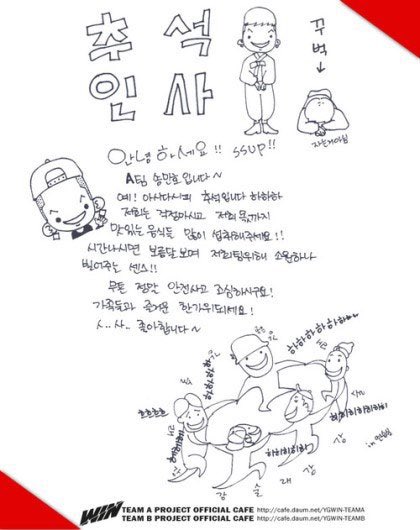 추석
인사
꾸벅
↓
자는거아님
안녕하세요!! ssup!!
A팀 송민호입니다~
예! 아시다시피 추석입니다 하하하
저희는 걱정마시고 저희 몫까지
맛있는 음식들 많이 섭취해주세요!!
시간나시면 보름달보며 저희팀위해 소원하나
빌어주는 센스!!
무튼 정말 안전사고 조심하시구요!
가족들과 즐거운 한가위되세요!
ㅅ..사.. 좋아합니다~
하하하하하하
하하하하
ㅎㅎㅎㅎㅎ
히히히히히히
히히히히히히히
강 술 래 상
in 연습실
WIN TEAM A PROJECT OFFICIAL CAFE http://cafe.daum.net/YGWIN-TEAMA
TEAM B PROJECT OFFICIAL CAFE http://cafe.daum.net/YGWIN-TEAMB